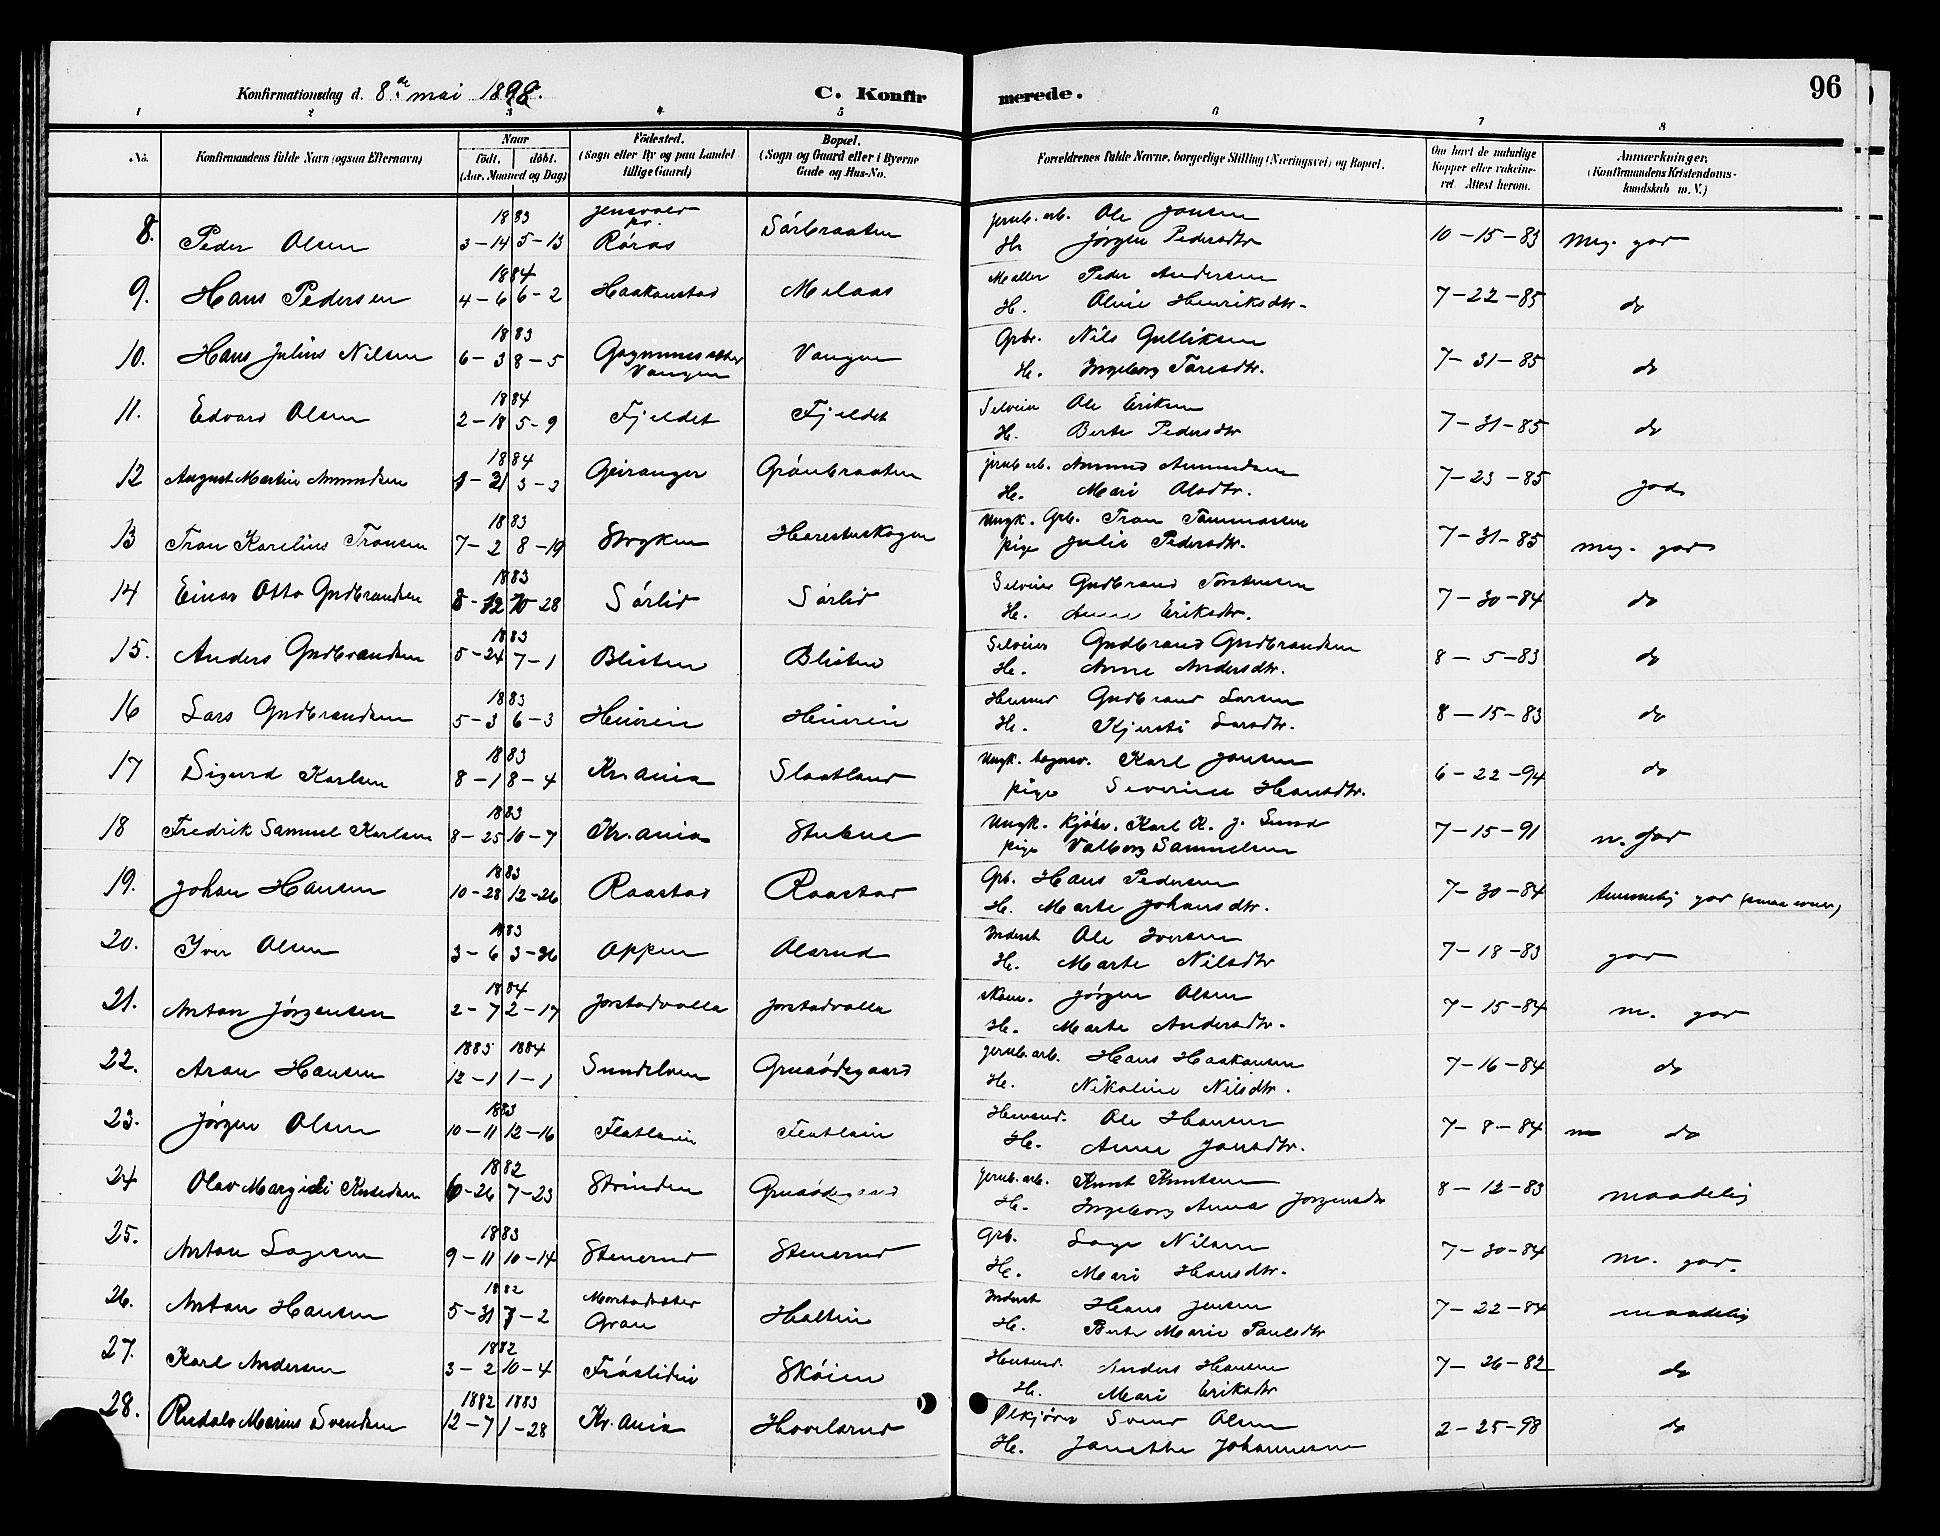 Konfirmationsdag d. 8de mai 1898. C. Konfirmerede. 96
1 2 3 4 5 6 7 8
No. Konfirmandens fulde Navn (ogsaa Efternavn) Naar födt. döbt. (Aar, Maaned og Dag) Födested. (Sogn eller By og paa Landet tillige Gaard) Bopæl. (Sogn og Gaard eller i Byerne Gade og Hus-No. Forældrenes fulde Navne, borgerlige Stilling (Næringsvei) og Bopæl. Om havt de naturlige Kopper eller vakcineret. Attest herom. Anmærkninger. (Konfirmandens Kristendomskundskab m. V.)
8. Peder Olsen 1883 3-14 5-13 Röros Sörbraaten jernb. arb. Ole Jonsen 10-15-83 Meg. god
H. Jörgine Pedersdtr
9. Hans Pedersen 1884 4-6 6-2 Haakonstad Melaas Møller Peder Andersen 7-22-85 do
H. Oline Henriksdtr.
10. Hans Julius Nilsen 1883 6-3 8-5 Vangen Vangen Grbr. Nils Gulliksen 7-31-85 do
H. Ingeborg Taresdtr.
11. Edvard Olsen 1884 2-18 5-9 Fjeldet Fjeldet Selveier Ole Eriksen 7-31-85 do
H. Berte Pedersdtr
12 August Martin Amundsen 1884 1-21 3-3 Geiranger Grönbraaten jernb. arb. Amund Amundsen 7-23-85 god
H. Mari Olsdtr.
13 Tron Karelius Tronsen 1883 7-2 8-19 Stryken Harestuskogen Ungk. Grb. Tron Tommassen 7-31-85 meg. god
pige Julie Pedersdtr.
14 Einar Otto Gudbrandsen 1883 8-12 10-28 Sörlid Sörlid Selveier Gudbrand Torstensen 7-30-84 do
H. Anne Eriksdtr.
15. Anders Gudbrandsen 1883 5-24 7-1 Blisten Blisten Selveier Gudbrand Gudbrandsen 8-5-83 do
H. Anne Andersdtr.
16 Lars Gudbrandsen 1883 5-3 6-3 Heieren Heieren Husmd Gudbrand Larsen 8-15-83 do
H. Kjersti Larsdtr.
17 Sigurd Karlsen 1883 8-1 8-4 Kr.ania Slaatland Ungk. Karl Jonsen 6-22-94 do
pige Severine Hansdtr.
18 Fredrik Samuel Karlsen 1883 8-25 10-7 Kr.ania Stubene Ungk. Kjöbr. Karl K. J. Lund 7-15-91 m. god
pige Valborg Samuelsen
19. Johan Hansen 1883 10-28 12-26 Raastad Raastad Grb. Hans Pedersen 7-30-84 temmelig god
H. Marte Johansdtr.
20. Iver Olsen 1883 3-6 3-26 Oppen Alsrud Inderst Ole Iversen 7-18-83 god
H. Marte Nilsdtr
21. Anton Jörgensen 1884 2-7 2-17 Jorstadvolla Jorstadvolla skom. Jörgen Olsen 7-15-84 m. god
H. Marte Andersdtr.
22. Aron Hansen 1883 1884 12-1 1-1 Sundelven Gruaödegaard jernb. arb. Hans Haakonsen 7-16-84 do
H. Nikoline Nilsdtr.
23. Jörgen Olsen 1883 10-11 12-16 Flatlain Flatlain Husmd. Ole Hansen 7-8-84 m do
H. Anne Jonsdtr.
24 Olav Margido Knudsen 1882 6-26 7-23 Strinden Gruaödegaard Jernb. arb. Knut Knutsen 8-12-83 maadelig
H. Ingeborg Anna Jorgensdtr
25. Anton Lagesen 1883 9-11 10-14 Stenerud Stenerud Grb. Lage Nilsen 7-30-84 m. god.
H. Mari Hansdtr.
26. Anton Hansen 1882 5-31 7-2 Gran Inderst Hans Jensen 7-22-84 maadelig
H. Berte Marie Paulsdtr
27. Karl Andersen 1882 3-2 10-4 Fröslidie Sköien Husmd. Anders Hansen 7-26-82 do
H. Mari Eriksdtr
28. Rudolv Marius Svendsen 1882 1883 12-7 1-28 Kr.ania Hovelsrud Ölkjörer Svend Olsen 2-25-98 do
H. Janette Johannesen